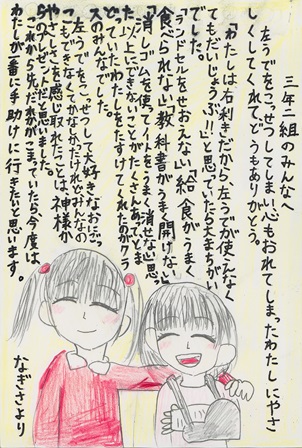 三年二組のみんなへ
左うでをこっせつしてしまい心もおれてしまったわたしにやさ
しくしてくれて、どうもありがとう。
「わたしは右利きだから左うでが使えなく
てもだいじょうぶ!!」と思っていたら大まちがい
でした。
「ランドセルをせおえない」「給食がうまく
食べられない」「教科書がうまく開けない」
「消しゴムを使ってノートをうまく消せない」思っ
た以上にできないことがたくさんあってとま
どっていたわたしをたすけてくれたのがクラ
スのみんなでした。
左うでをこっせつして大好きなおにごっ
こもできなくてかなしかったけれどみんなの
やさしさを感じ取れたことは、神様か
らのプレゼントだと思いました。
これから先だれかがこまっていたら、今度は
わたしが一番に手助けに行きたいと思います。
なぎさより